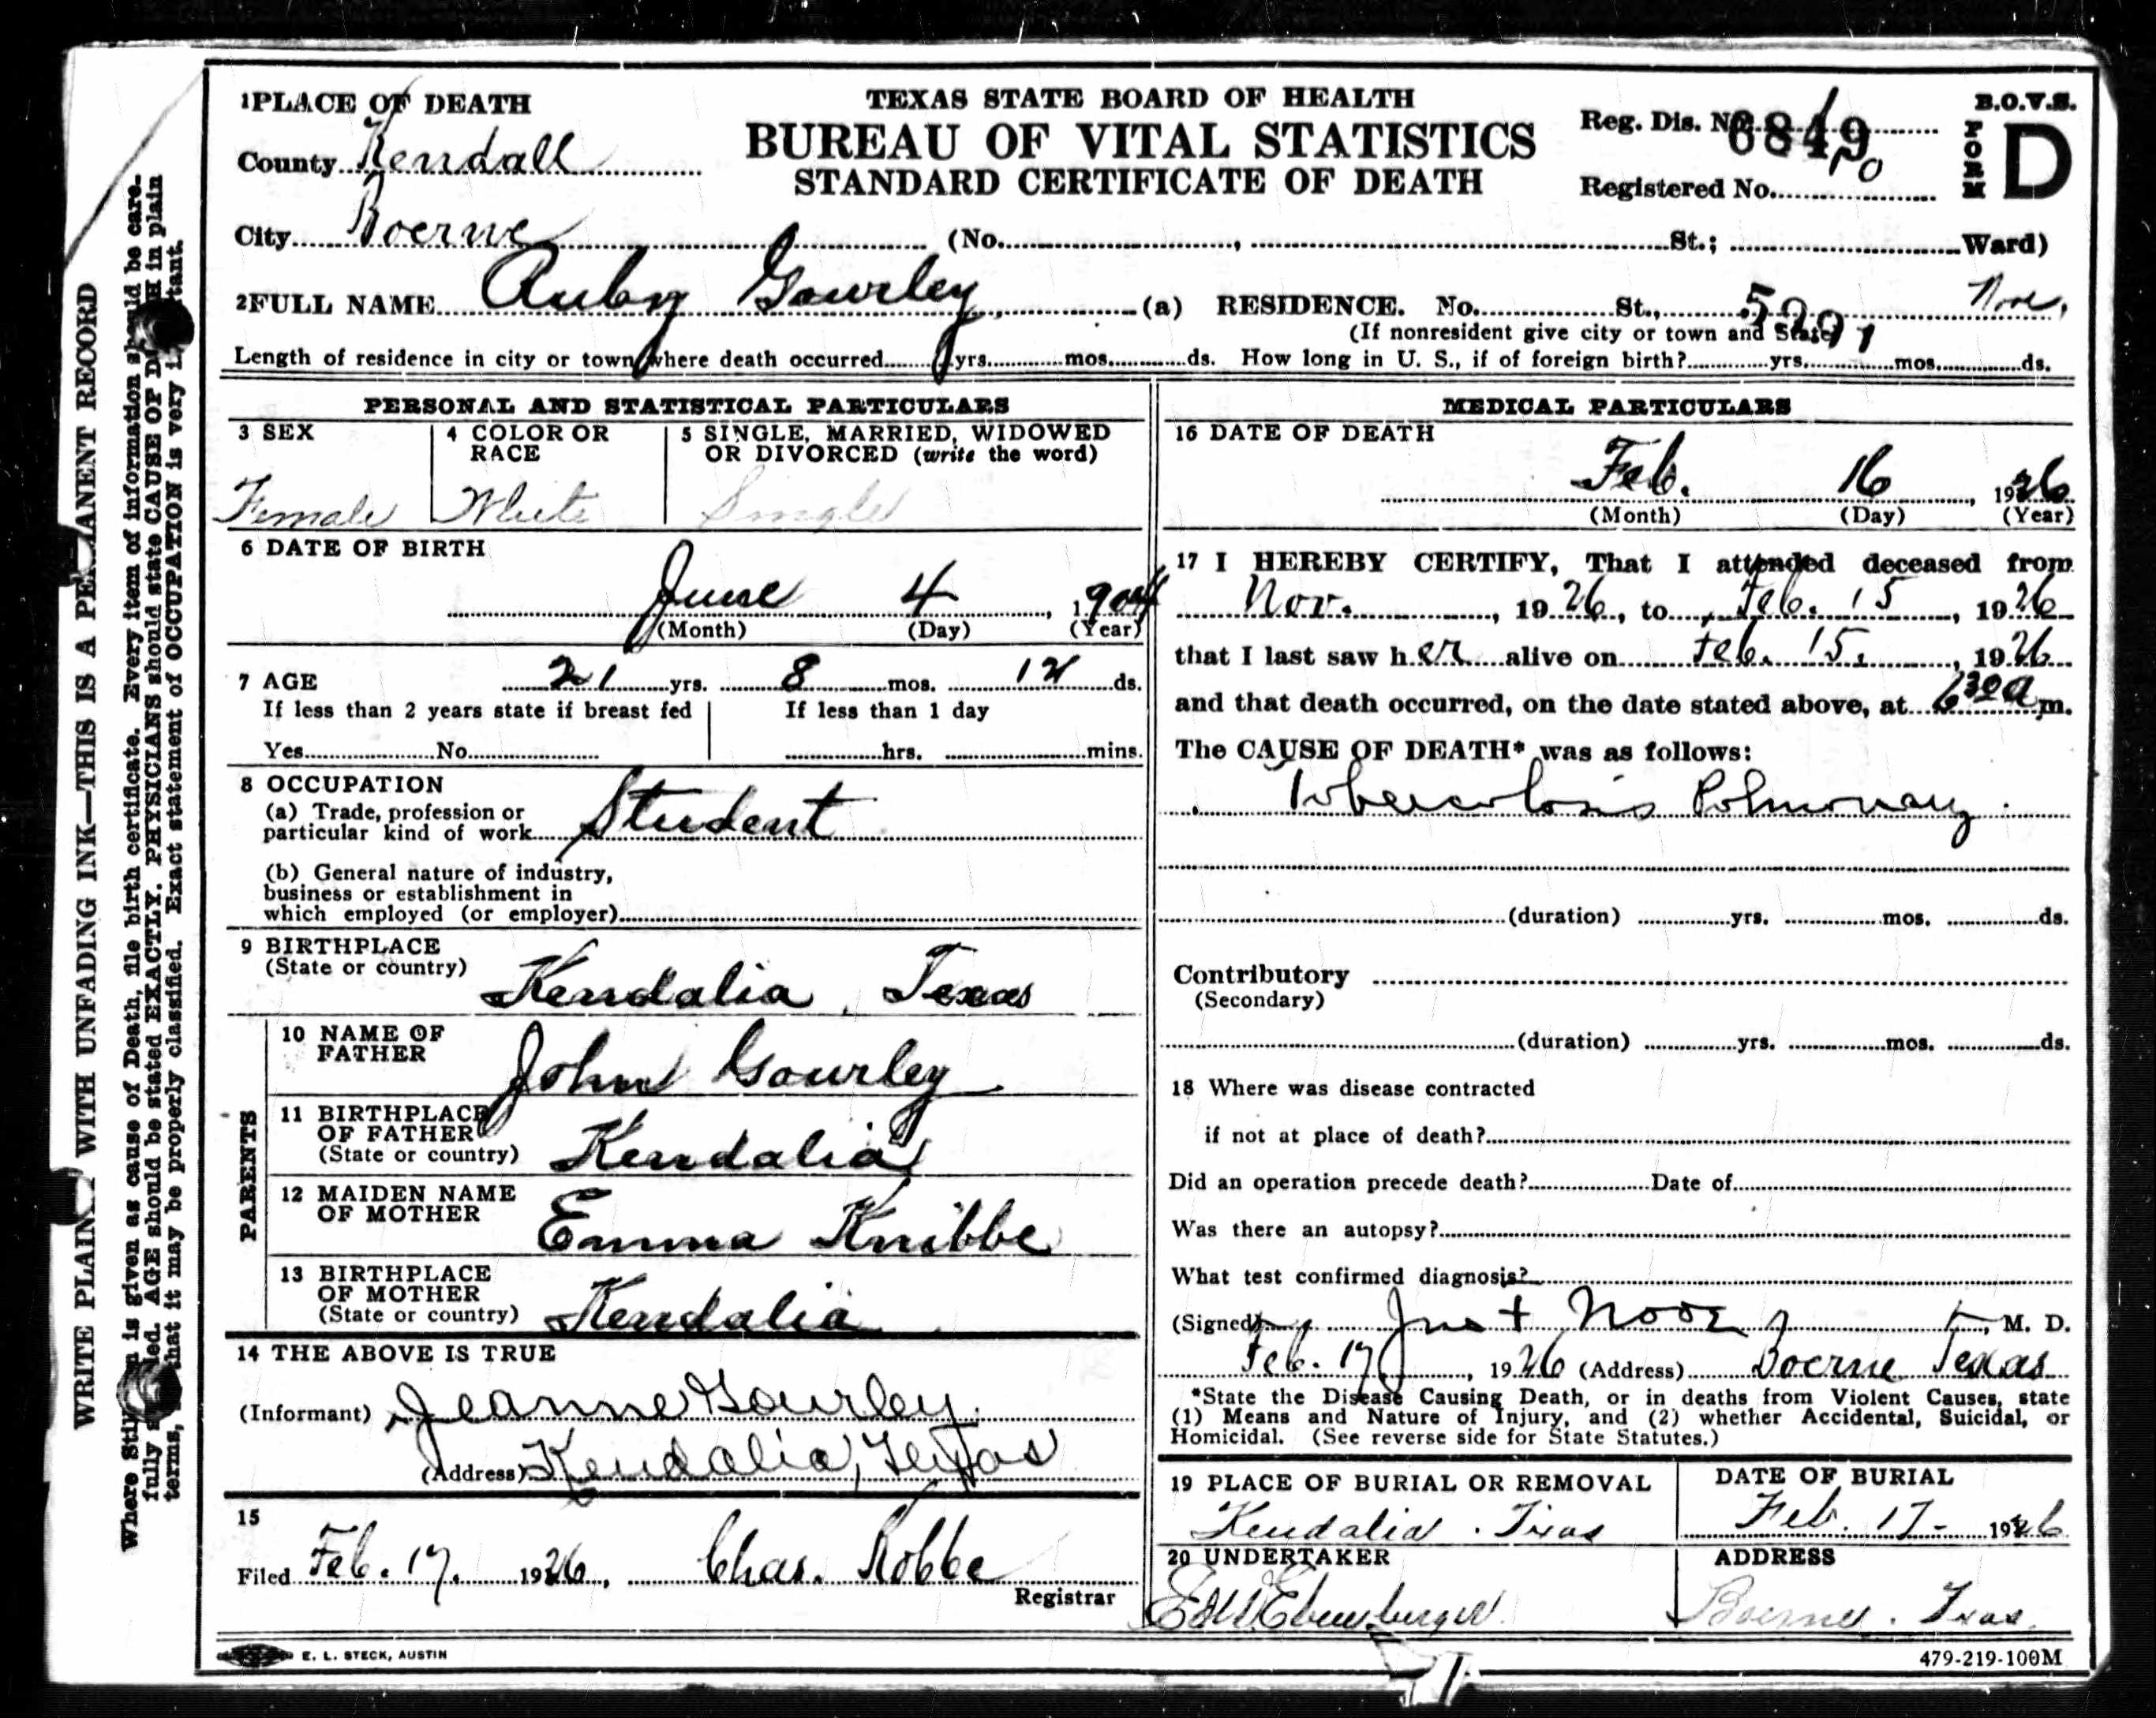 TEXAS STATE BOARD OF HEALTH
BUREAU OF VITAL STATISTICS
STANDARD CERTIFICATE OF DEATH
B.O.V.S.
FORM D
Reg. Dis. No. 1
6849
Registered No. 10
1 PLACE OF DEATH
County Kendall
City Boerne (No. , St.; Ward)
2 FULL NAME Ruby Gourley (a) RESIDENCE. No. St.,
(If nonresident give city or town and State)
Length of residence in city or town where death occurred yrs. mos. ds. How long in U. S., if of foreign birth? yrs. mos. ds.
PERSONAL AND STATISTICAL PARTICULARS
3 SEX
Female
4 COLOR OR RACE
White
5 SINGLE, MARRIED, WIDOWED
OR DIVORCED (write the word)
Single
6 DATE OF BIRTH
June 4, 1904
(Month) (Day) (Year)
7 AGE 21 yrs. 8 mos. 12 ds.
If less than 2 years state if breast fed
Yes No
If less than 1 day
hrs. mins.
8 OCCUPATION
(a) Trade, profession or
particular kind of work Student
(b) General nature of industry,
business or establishment in
which employed (or employer)
9 BIRTHPLACE
(State or country) Kendalia, Texas
PARENTS
10 NAME OF
FATHER John Gourley
11 BIRTHPLACE
OF FATHER
(State or country) Kendalia
12 MAIDEN NAME
OF MOTHER Emma Knibbe
13 BIRTHPLACE
OF MOTHER
(State or country) Kendalia
14 THE ABOVE IS TRUE
(Informant) Jeanne Gourley
(Address) Kendalia, Texas
15
Filed Feb. 17. 1926, Chas. Robbe
Registrar
MEDICAL PARTICULARS
16 DATE OF DEATH
Feb. 16, 1926
(Month) (Day) (Year)
17 I HEREBY CERTIFY, That I attended deceased from
Nov. , 1926, to Feb. 15, 1926
that I last saw her alive on Feb. 15. , 1926
and that death occurred, on the date stated above, at 630 a m.
The CAUSE OF DEATH* was as follows:
Tuberculosis Pulmonary
(duration) yrs. mos. ds.
Contributory
(Secondary)
(duration) yrs. mos. ds.
18 Where was disease contracted
if not at place of death?
Did an operation precede death? Date of
Was there an autopsy?
What test confirmed diagnosis?
(Signed) , M. D.
Feb. 17, 1926 (Address) Boerne Texas
*State the Disease Causing Death, or in deaths from Violent Causes, state
(1) Means and Nature of Injury, and (2) whether Accidental, Suicidal, or
Homicidal. (See reverse side for State Statutes.)
19 PLACE OF BURIAL OR REMOVAL
Kendalia. Texas
DATE OF BURIAL
Feb. 17- 1926
20 UNDERTAKER
ADDRESS
Boerne. Texas.
E. L. STECK, AUSTIN
479-219-100M
WRITE PLAINLY WITH UNFADING INK—THIS IS A PERMANENT RECORD
Where is given as cause of Death, file birth certificate. Every item of information should be care-
fully AGE should be stated EXACTLY. PHYSICIANS should state CAUSE OF DEATH in plain
terms, that it may be properly classified. Exact statement of OCCUPATION is very